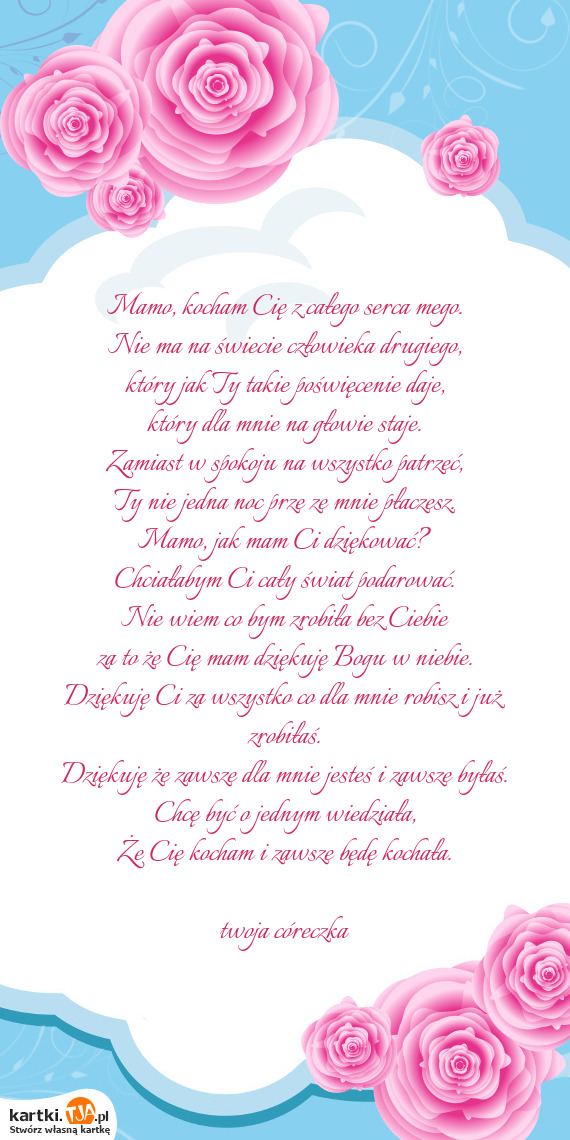 Mamo, kocham Cię z całego serca mego.
Nie ma na świecie człowieka drugiego,
który jak Ty takie poświęcenie daje,
który dla mnie na głowie staje.
Zamiast w spokoju na wszystko patrzeć,
Ty nie jedna noc prze ze mnie płaczesz.
Mamo, jak mam Ci dziękować?
Chciałabym Ci cały świat podarować.
Nie wiem co bym zrobiła bez Ciebie
za to że Cię mam dziękuję Bogu w niebie.
Dziękuję Ci za wszystko co dla mnie robisz i już
zrobiłaś.
Dziękuję że zawsze dla mnie jesteś i zawsze byłaś.
Chcę być o jednym wiedziała,
Że Cię kocham i zawsze będę kochała.
twoja córeczka
kartki.TJA.pl
Stwórz własną kartkę